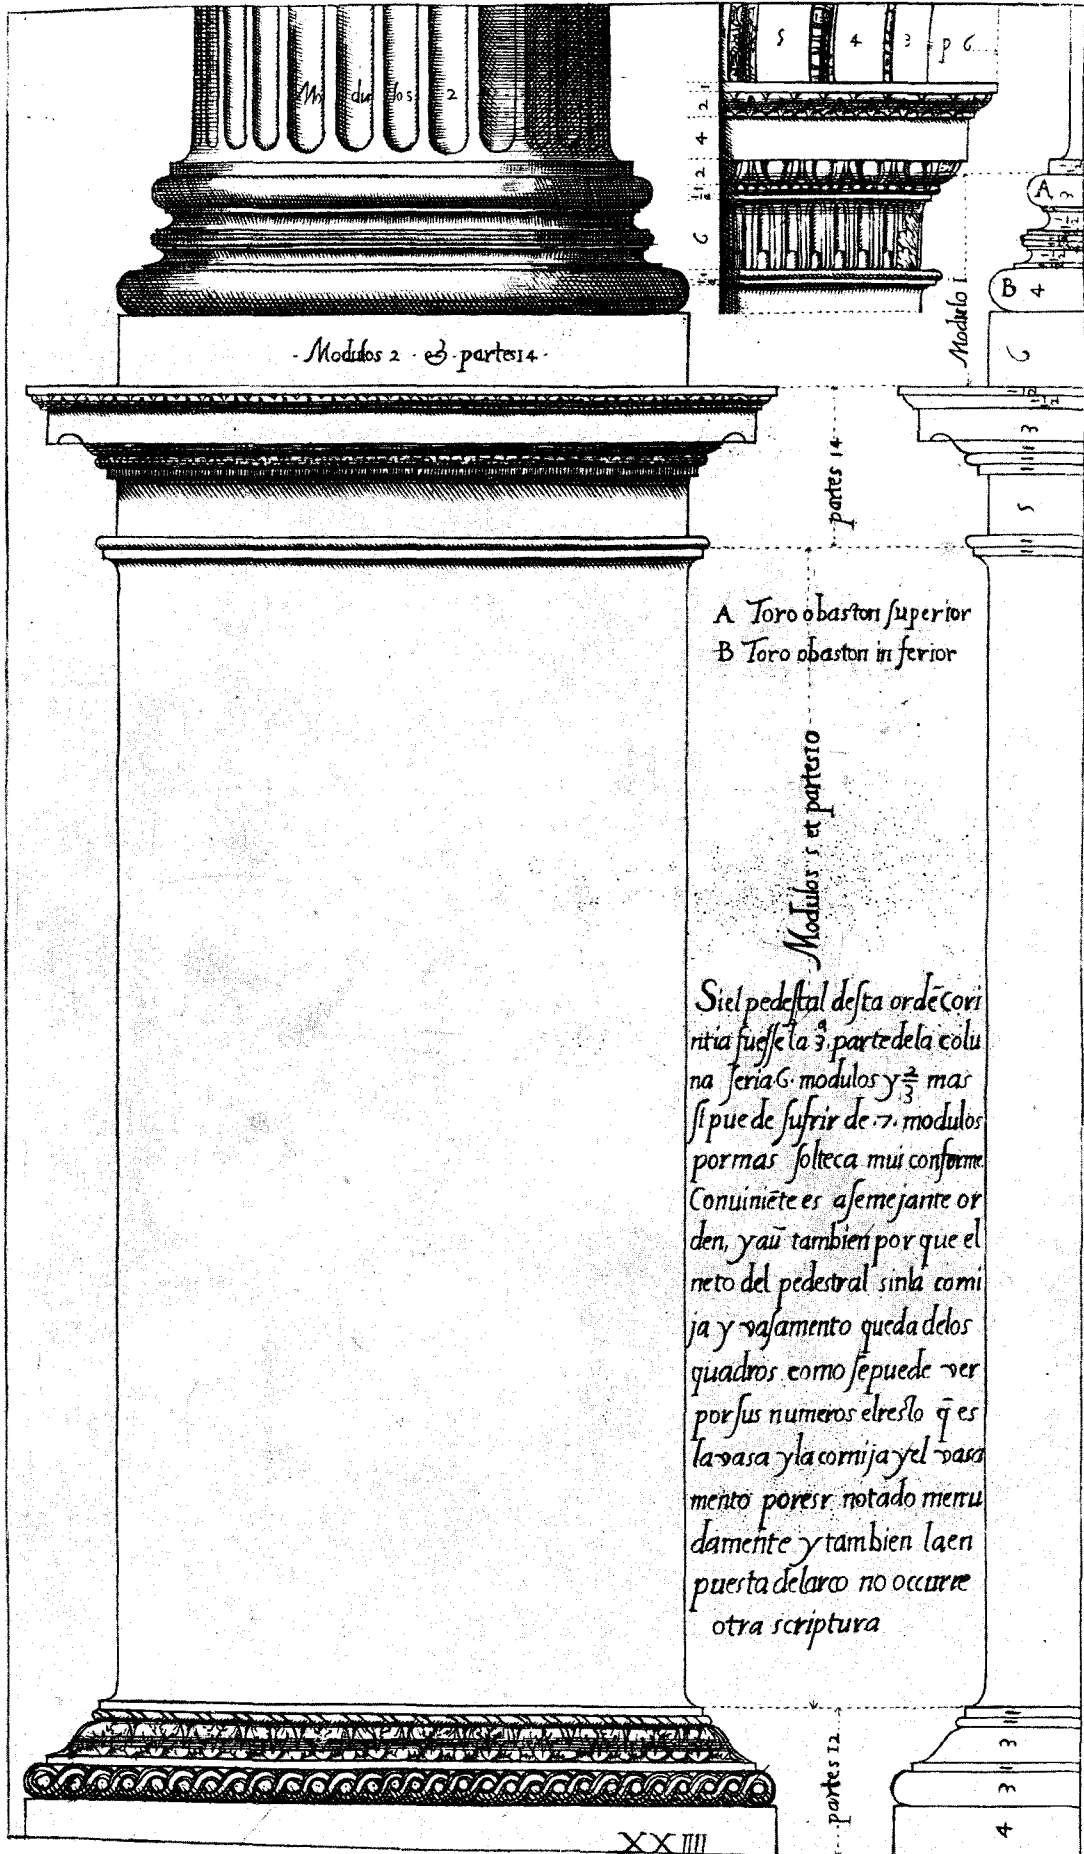 Modulos 2
5 4 3 p 6
1
2
4
2
1
6
A 3
B 4
6
Modulo 1
- Modulos 2 · & · partes 14 ·
3
5
partes 14
A Toro obaston ſuperior
B Toro obaston in ferior
Modulos 5 et partes 10
Siel pedeſtal deſta ordē cori
ntia fueſſe la 3.ª parte dela colu
na ſeria 6· modulos y 2/3 mas
ſi puede ſufrir de ·7· modulos
por mas ſolteca mui conforme
Conuiniēte es aſemejante or
den, y aū tambien por que el
neto del pedestral sin la corni
ja y vaſamento queda delos
quadros como ſe puede ver
por ſus numeros el resto q̄ es
la vasa y la cornija y el vasa
mento por esr notado menu
damente y tambien la en
puesta del arco no occurre
otra scriptura
partes 12
3
3
4
XXIIII